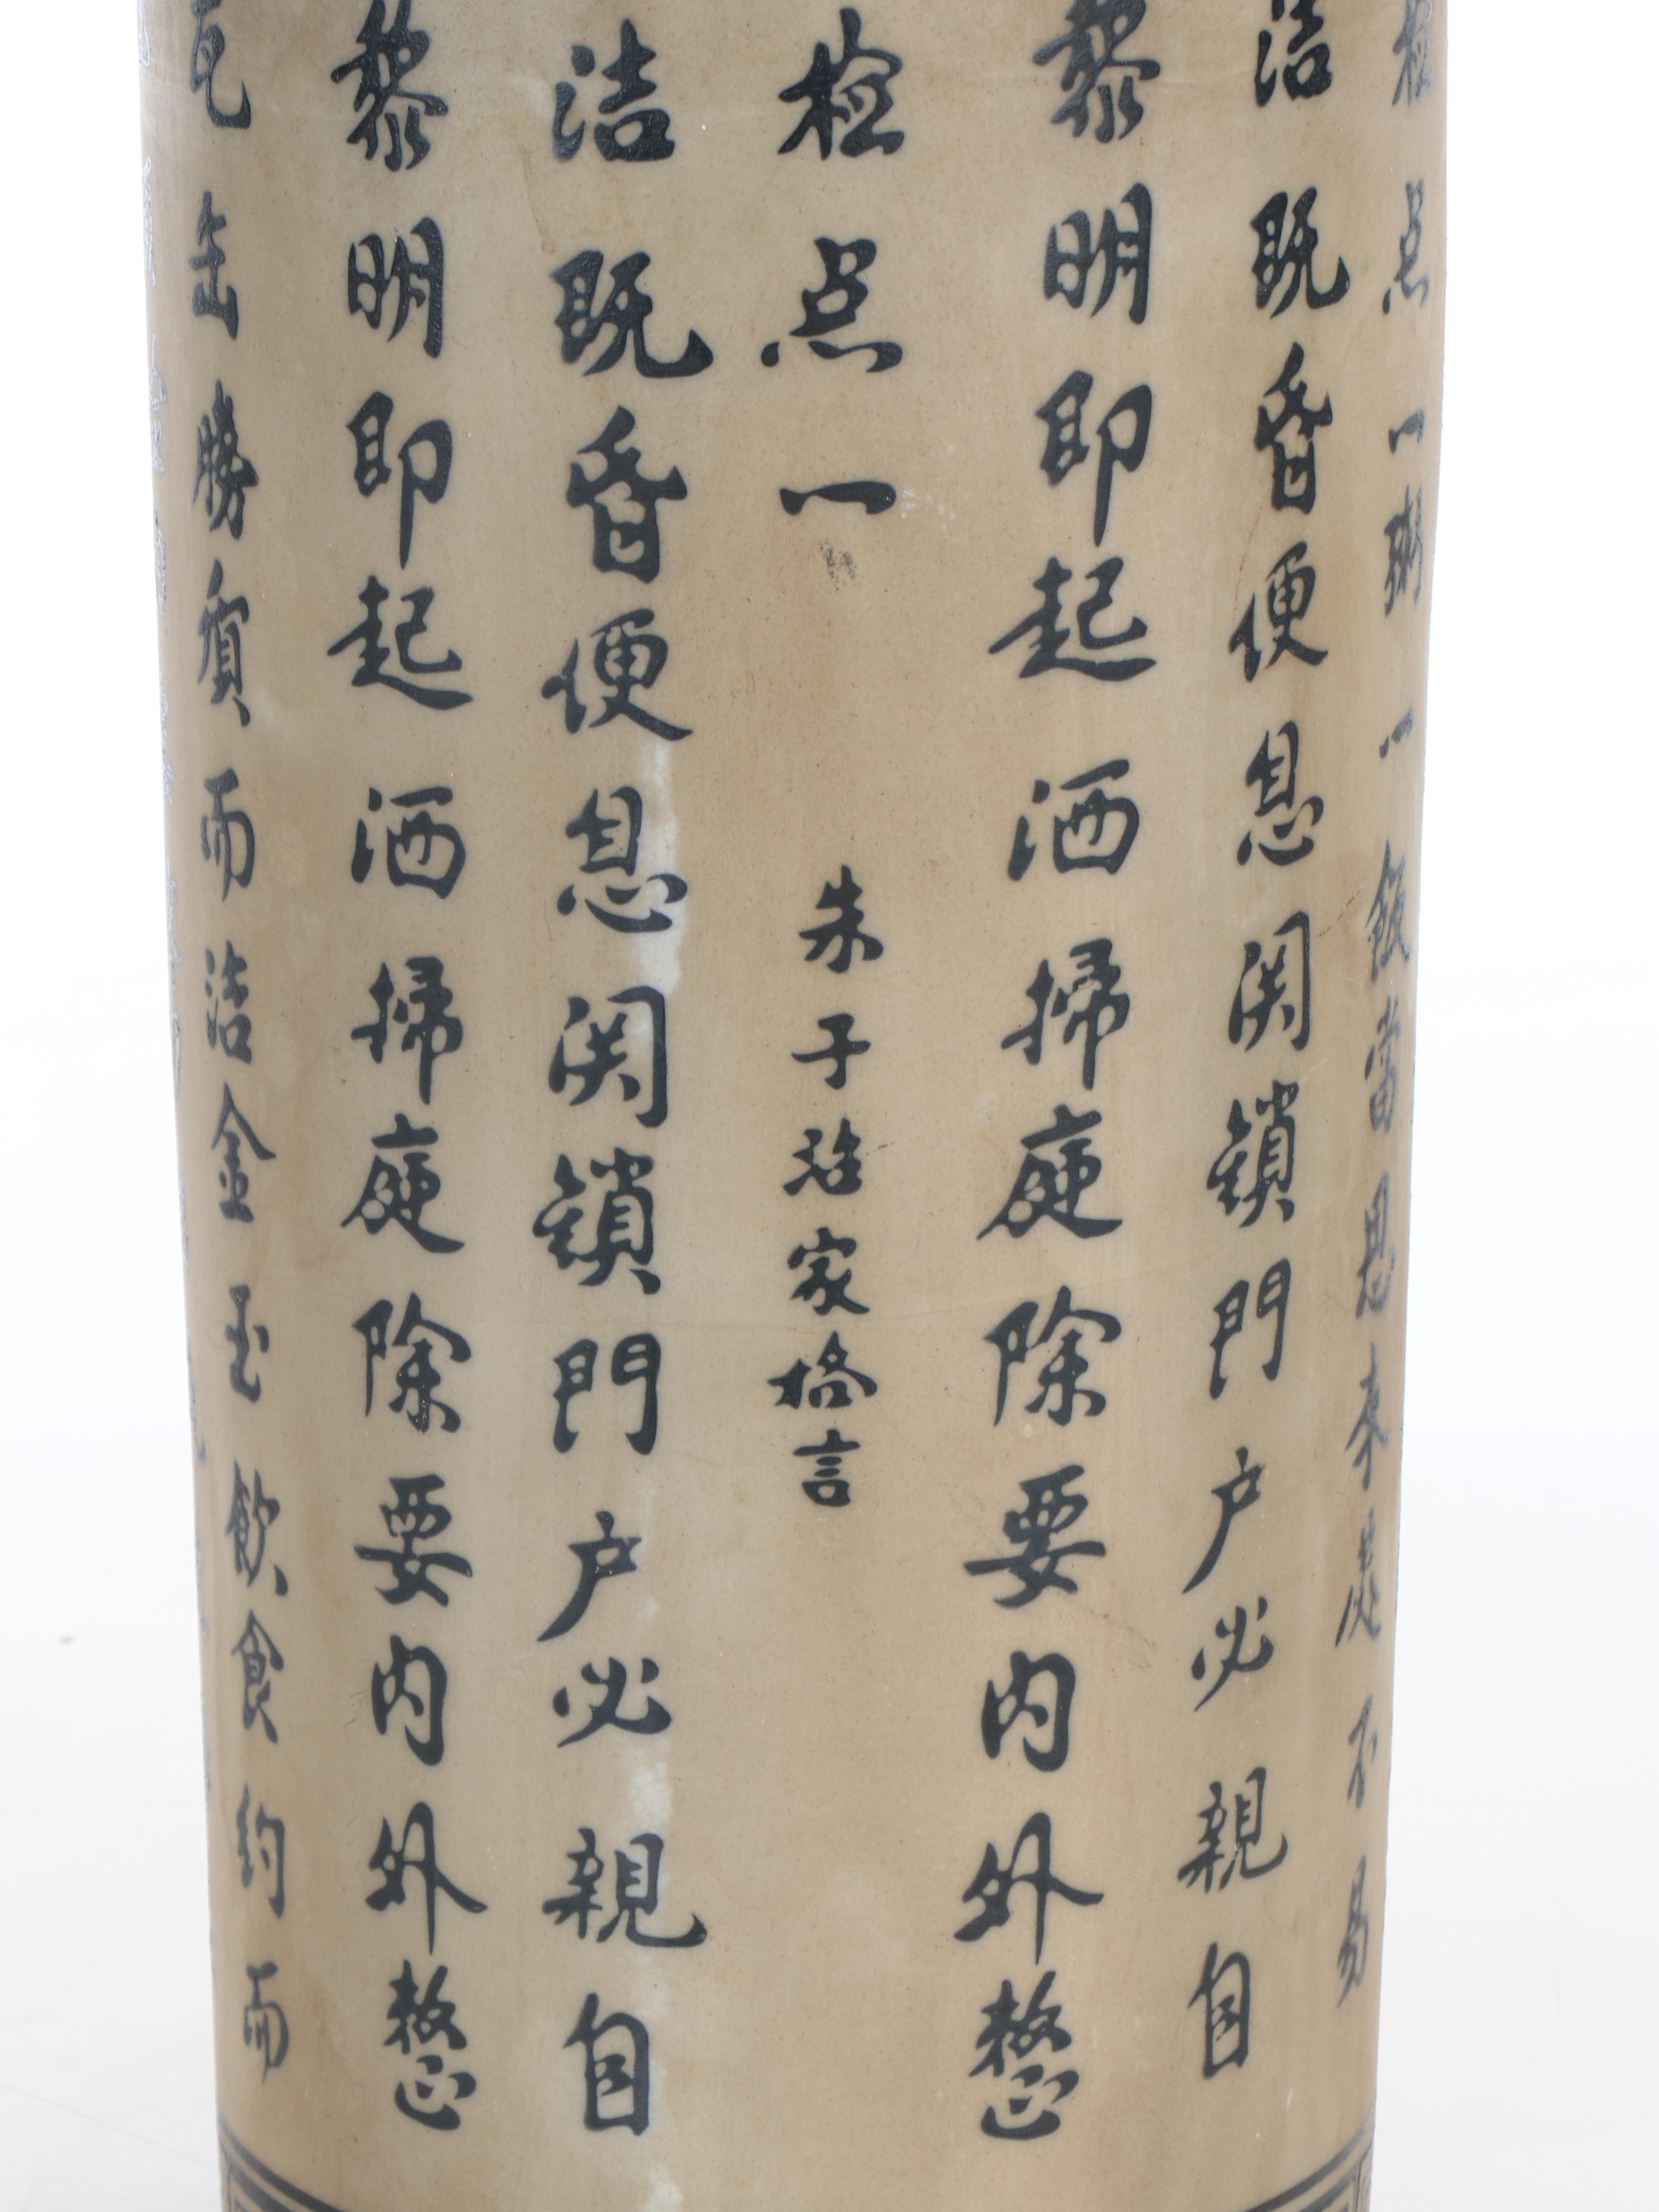 检点一粥一飯當思来處不易
洁既昏便息関鎖門户必親自
黎明即起洒掃庭除要内外整
检点一
朱子治家格言
洁既昏便息関鎖門户必親自
黎明即起洒掃庭除要内外整
瓦缶勝質而洁金玉飲食約而